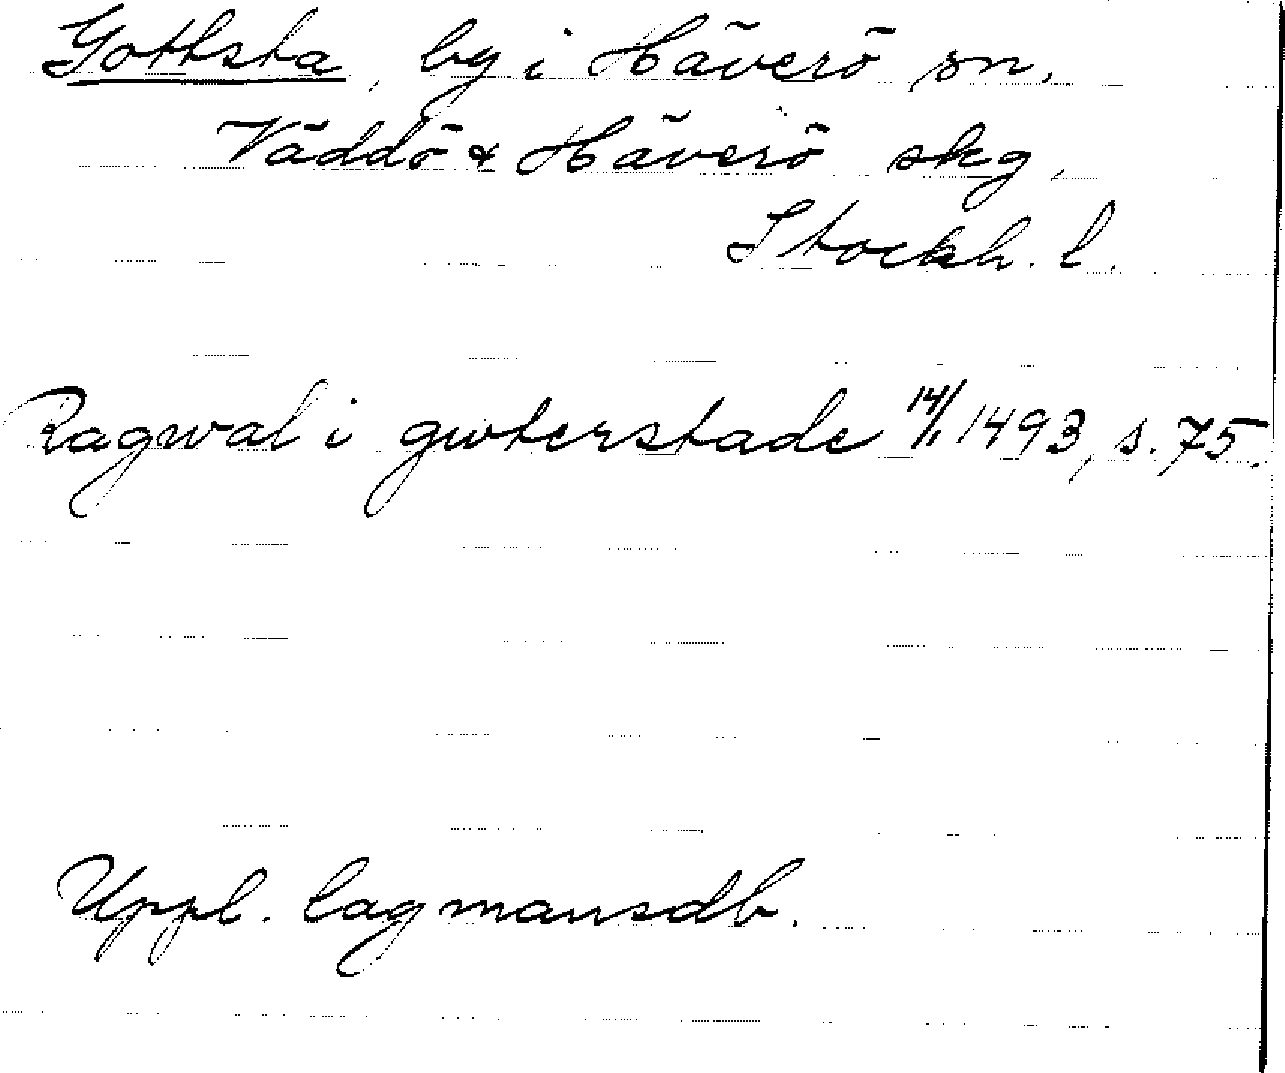 Gottsta, by i Häverö sn,
Väddö & Häverö skg,
Stockh. l.
Ragwal i gwterstade 14/1 1493, s. 75.
Uppl. lagmansdb.